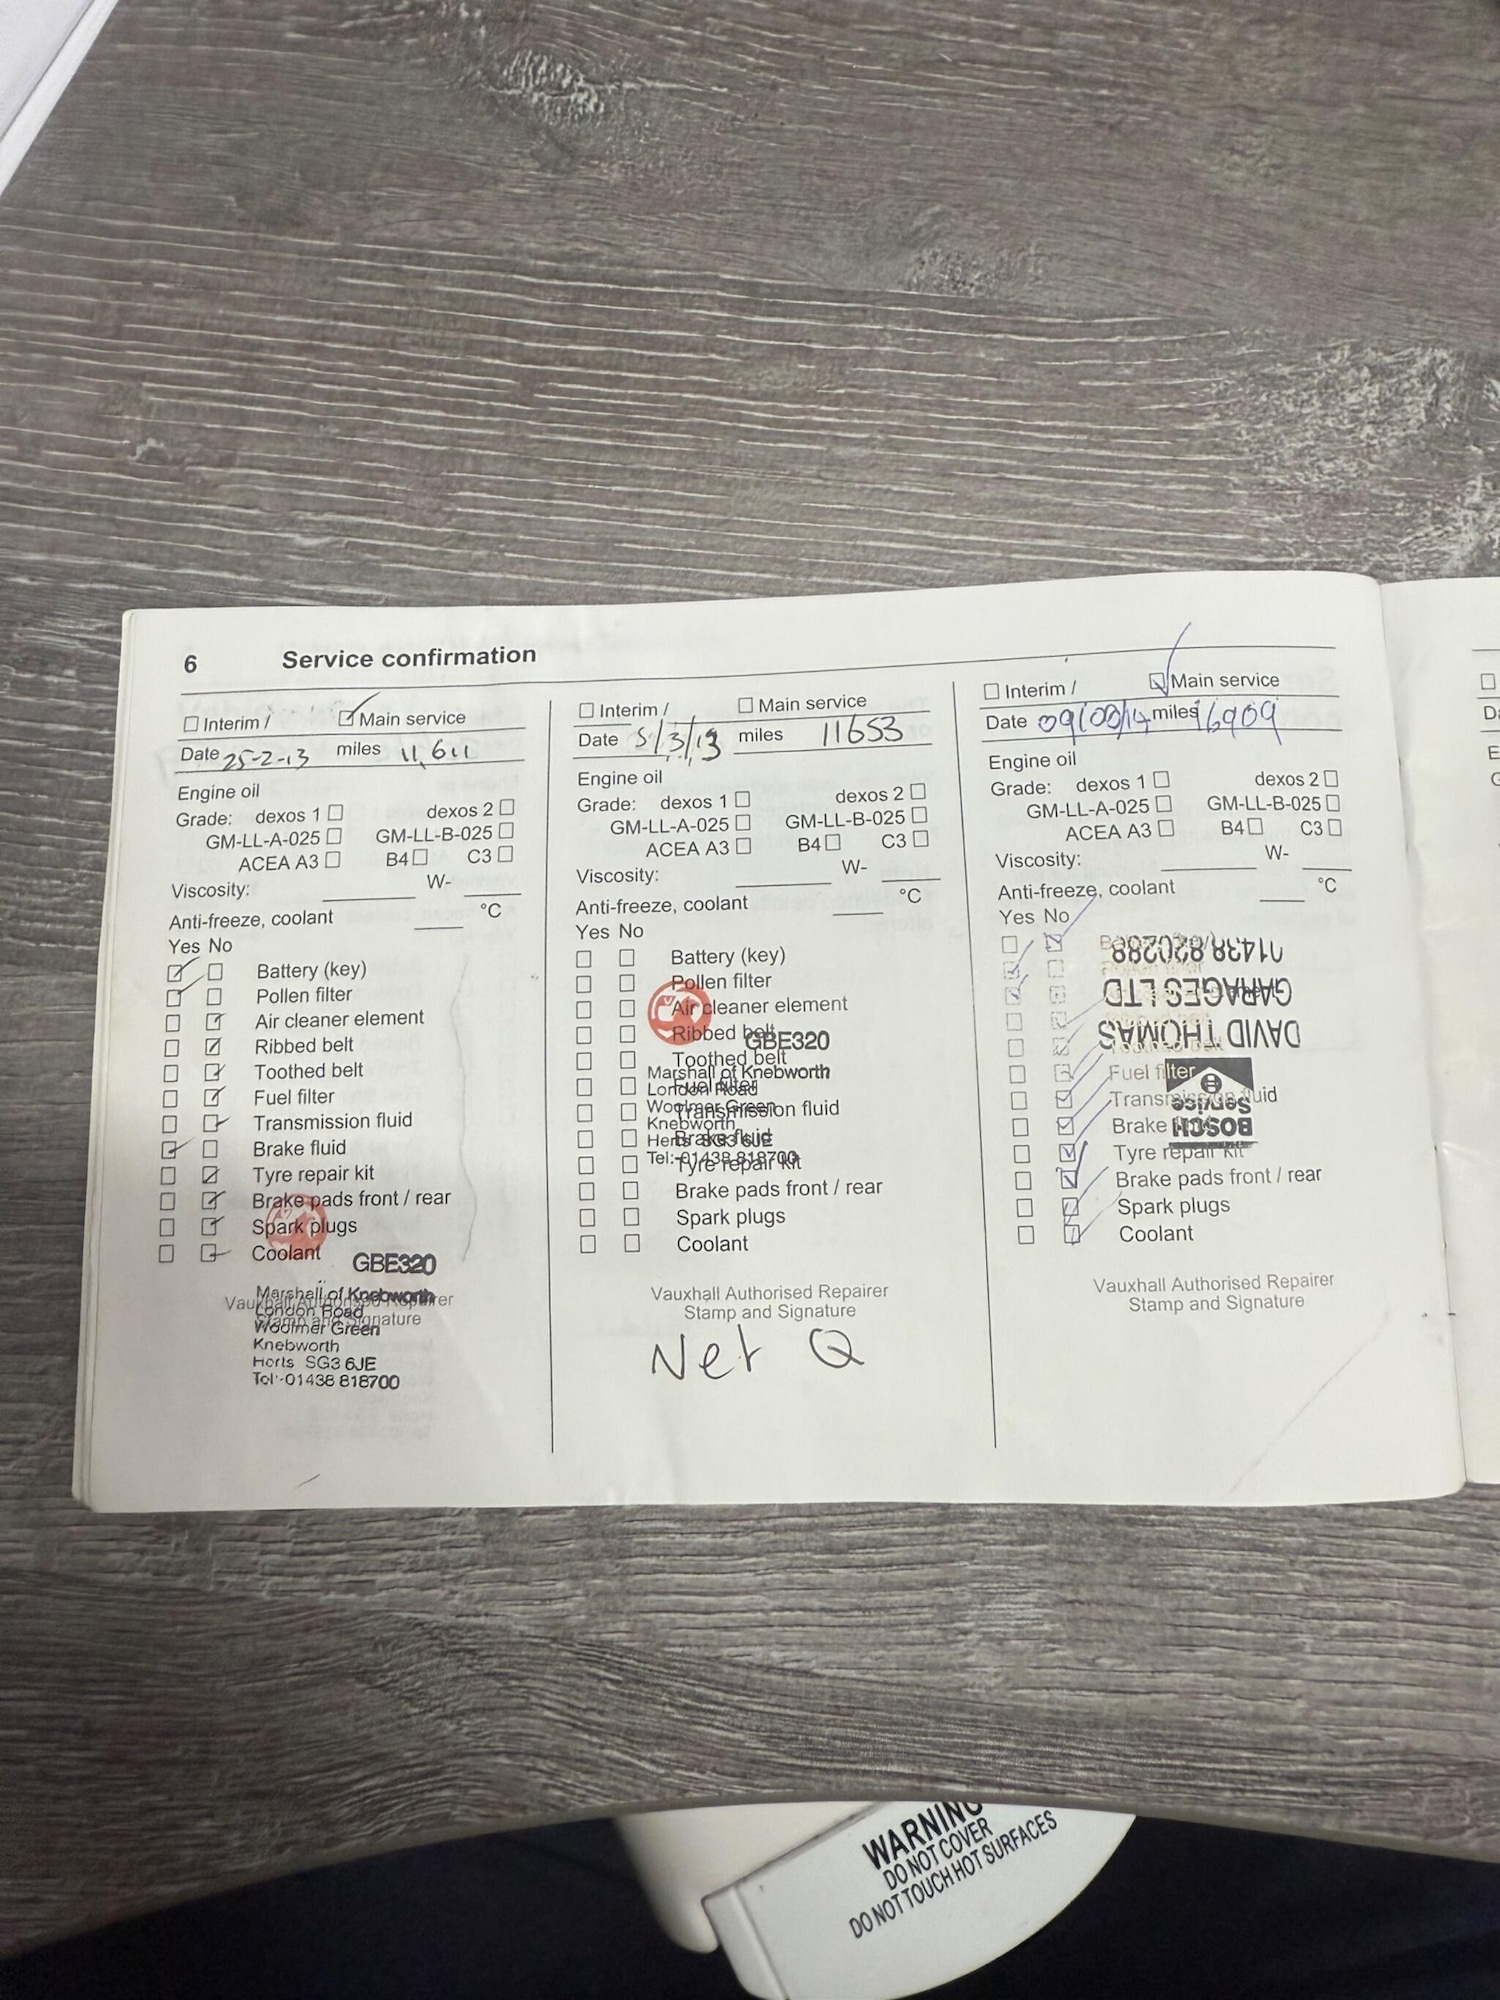 6 Service confirmation
Interim / Main service
Date 25-2-13 miles 11,611
Engine oil
Grade: dexos 1 dexos 2
GM-LL-A-025 GM-LL-B-025
ACEA A3 B4 C3
Viscosity: W-
Anti-freeze, coolant °C
Yes No
Battery (key)
Pollen filter
Air cleaner element
Ribbed belt
Toothed belt
Fuel filter
Transmission fluid
Brake fluid
Tyre repair kit
Brake pads front / rear
Spark plugs
Coolant
GBE320
Vauxhall Authorised Repairer
Stamp and Signature
Marshall of Knebworth
London Road
Woolmer Green
Knebworth
Herts SG3 6JE
Tel:-01438 818700
Interim / Main service
Date 5/3/13 miles 11653
Engine oil
Grade: dexos 1 dexos 2
GM-LL-A-025 GM-LL-B-025
ACEA A3 B4 C3
Viscosity: W-
Anti-freeze, coolant °C
Yes No
Battery (key)
Pollen filter
Air cleaner element
Ribbed belt
Toothed belt
Fuel filter
Transmission fluid
Brake fluid
Tyre repair kit
Brake pads front / rear
Spark plugs
Coolant
GBE320
Marshall of Knebworth
London Road
Woolmer Green
Knebworth
Herts SG3 6JE
Tel:-01438 818700
Vauxhall Authorised Repairer
Stamp and Signature
Net Q
Interim / Main service
Date miles 16909
Engine oil
Grade: dexos 1 dexos 2
GM-LL-A-025 GM-LL-B-025
ACEA A3 B4 C3
Viscosity: W-
Anti-freeze, coolant °C
Yes No
Toothed belt
Fuel filter
Transmission fluid
Brake fluid
Tyre repair kit
Brake pads front / rear
Spark plugs
Coolant
BOSCH
Service
DAVID THOMAS
GARAGES LTD
01438 820288
Vauxhall Authorised Repairer
Stamp and Signature
WARNING
DO NOT COVER
DO NOT TOUCH HOT SURFACES